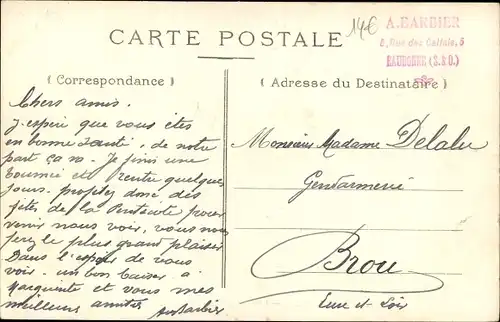 14€
A. BARBIER
5, Rue des Callais, 5
EAUBONNE (S.&O.)
CARTE POSTALE
( Correspondance )
( Adresse du Destinataire )
Chers amis.
J'espère que vous êtes
en bonne santé, de notre
part ça va. Je fini une
tournée et rentre quelque
jours. profitez donc des
fêtes de la Pentecôte pour
venir nous voir, vous nous
ferez le plus grand plaisir
Dans l'espoir de vous
voir. un bon baiser à
Marguerite et vous mes
meilleurs amitiés
Barbier
Monsieur Madame Delalu
Gendarmerie
Brou
Eure et Loir